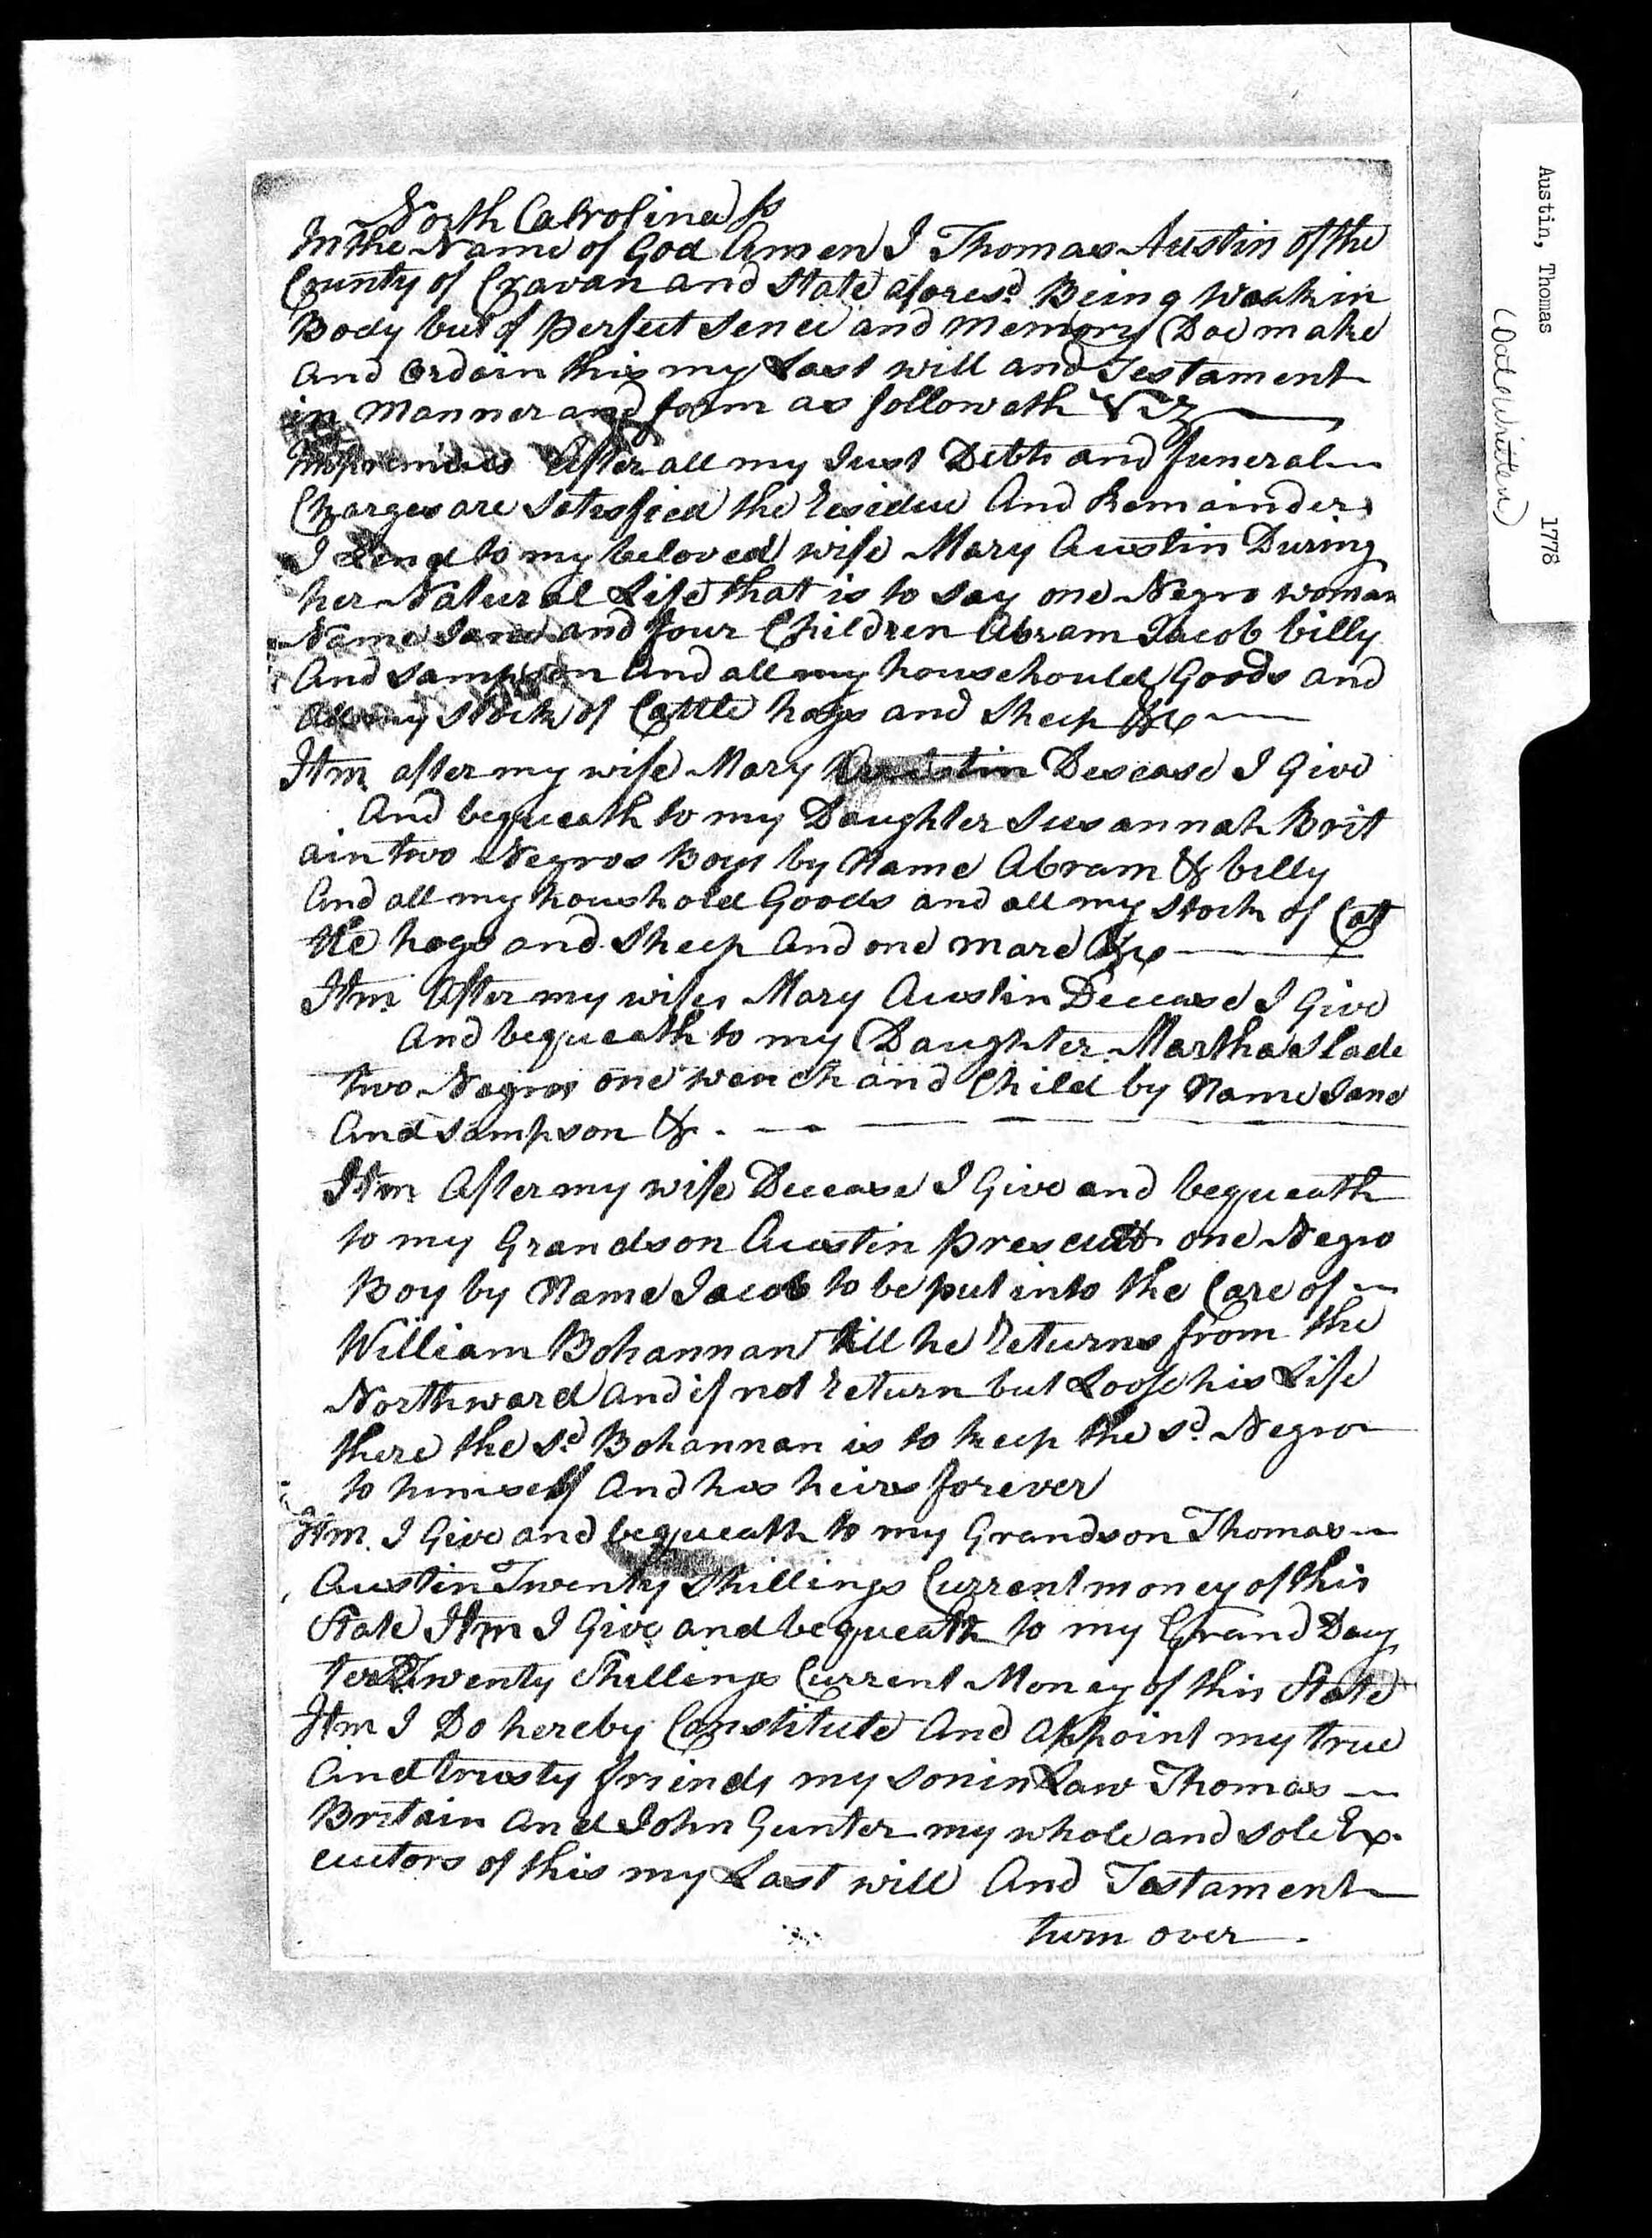 North Carrolina ss
In the Name of God Amen I Thomas Austin of the
County of Cravan and State aforesd. Being Weak in
Body but of perfect Sence and Memory Doe make
and Ordain this my Last will and Testament
in Manner and form as followeth Viz
Impremises After all my Just Debts and funeral
Charges are Sattisfied the Residue And Remainder
I Lend to my beloved wife Mary Austin During
her Natural Life that is to say one Negro woman
Name Jane and four Children Abram Jacob billy
And Sampson And all my househould Goods and
all my Stock of Cattle hogs and Sheep &c
Itm after my wife Mary Austin Desease I Give
And bequeath to my Daughter Susannah Brit
ain two Negros Boys by Name Abram & billy
And all my houshold Goods and all my Stock of Cat
tle hogs and Sheep And one mare &c
Itm After my wifes Mary Austin Decease I Give
And bequeath to my Daughter Martha Slade
two Negros one wench and Child by Name Jane
And Sampson &.
Itm After my wife Decease I Give and bequeath
to my Grandson Austin prescutt one Negro
Boy by Name Jacob to be put into the Care of
William Bohannan till he Returns from the
Northward and if not Return but Loose his Life
there the sd. Bohannan is to keep the sd. Negro
to himself And his heirs forever
Itm. I Give and bequeath to my Grandson Thomas
Austin Twenty Shillings Current money of this
State Itm I Give and bequeath to my Grand Daug
ter Twenty Shillings Current Money of this State
Itm I Do hereby Constitute And appoint my true
And trusty friends my son in Law Thomas
Britain And John Gunter my whole and sole Ex
cutors of this my Last will And Testament
turn over
Austin, Thomas 1778
(Date written)